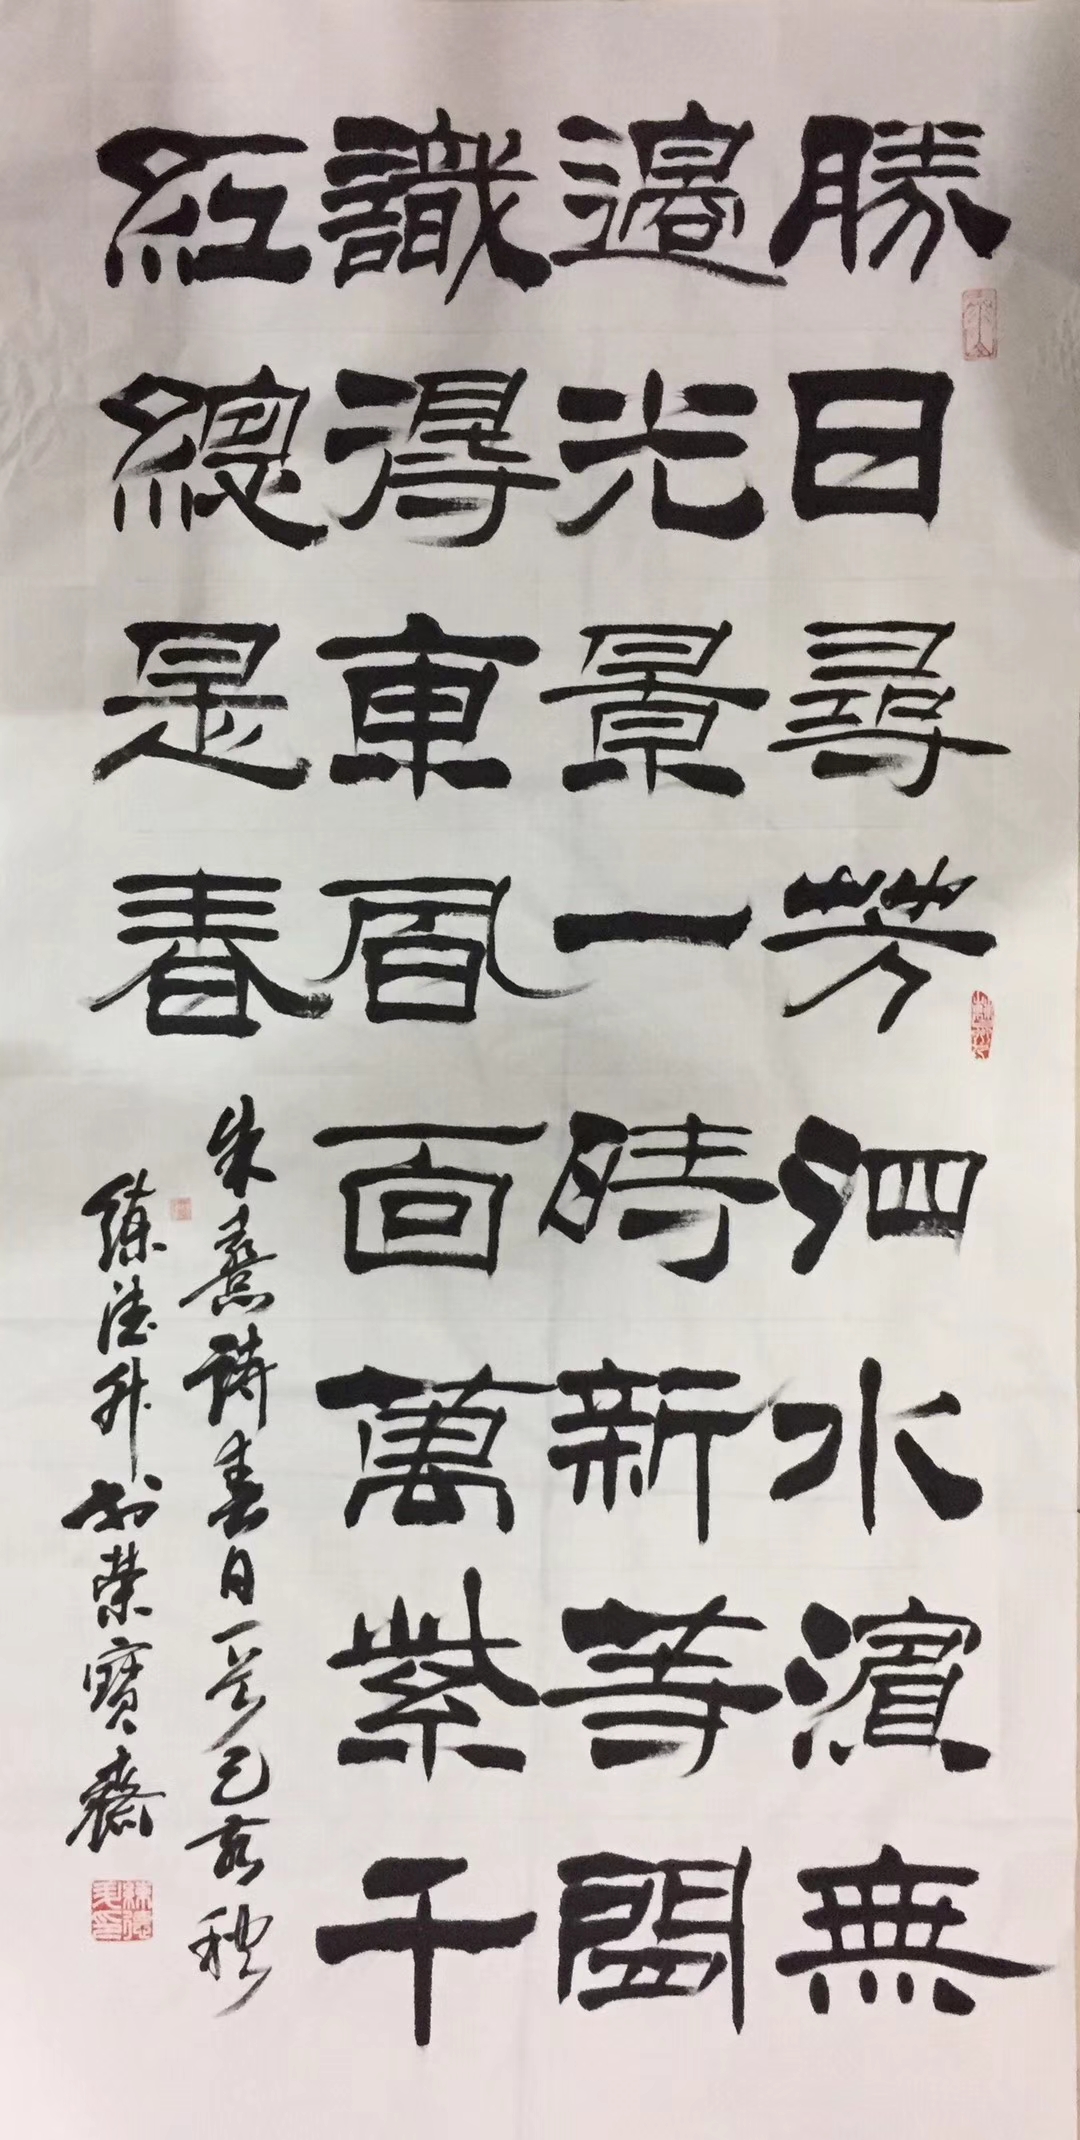 勝日尋芳泗水濱無
邊光景一時新等閒
識得東風面萬紫千
紅總是春
朱熹詩春日一首己亥秋
練德升书榮寶齋